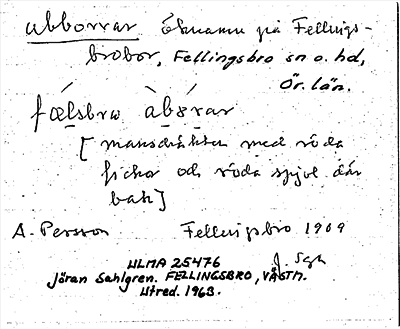 abborrar Öknamn på Fellings-
brobor, Fellingsbro sn o. hd,
Ör. län.
fǽlsbrω àbɜ́rar
[mansdräkten med röda
fickor och röda spjol där
bak]
A. Persson Fellingsbro 1909
ULMA 25476 J. Sgn
Jöran Sahlgren. FELLINGSBRO, VÄSTM.
Utred. 1963.